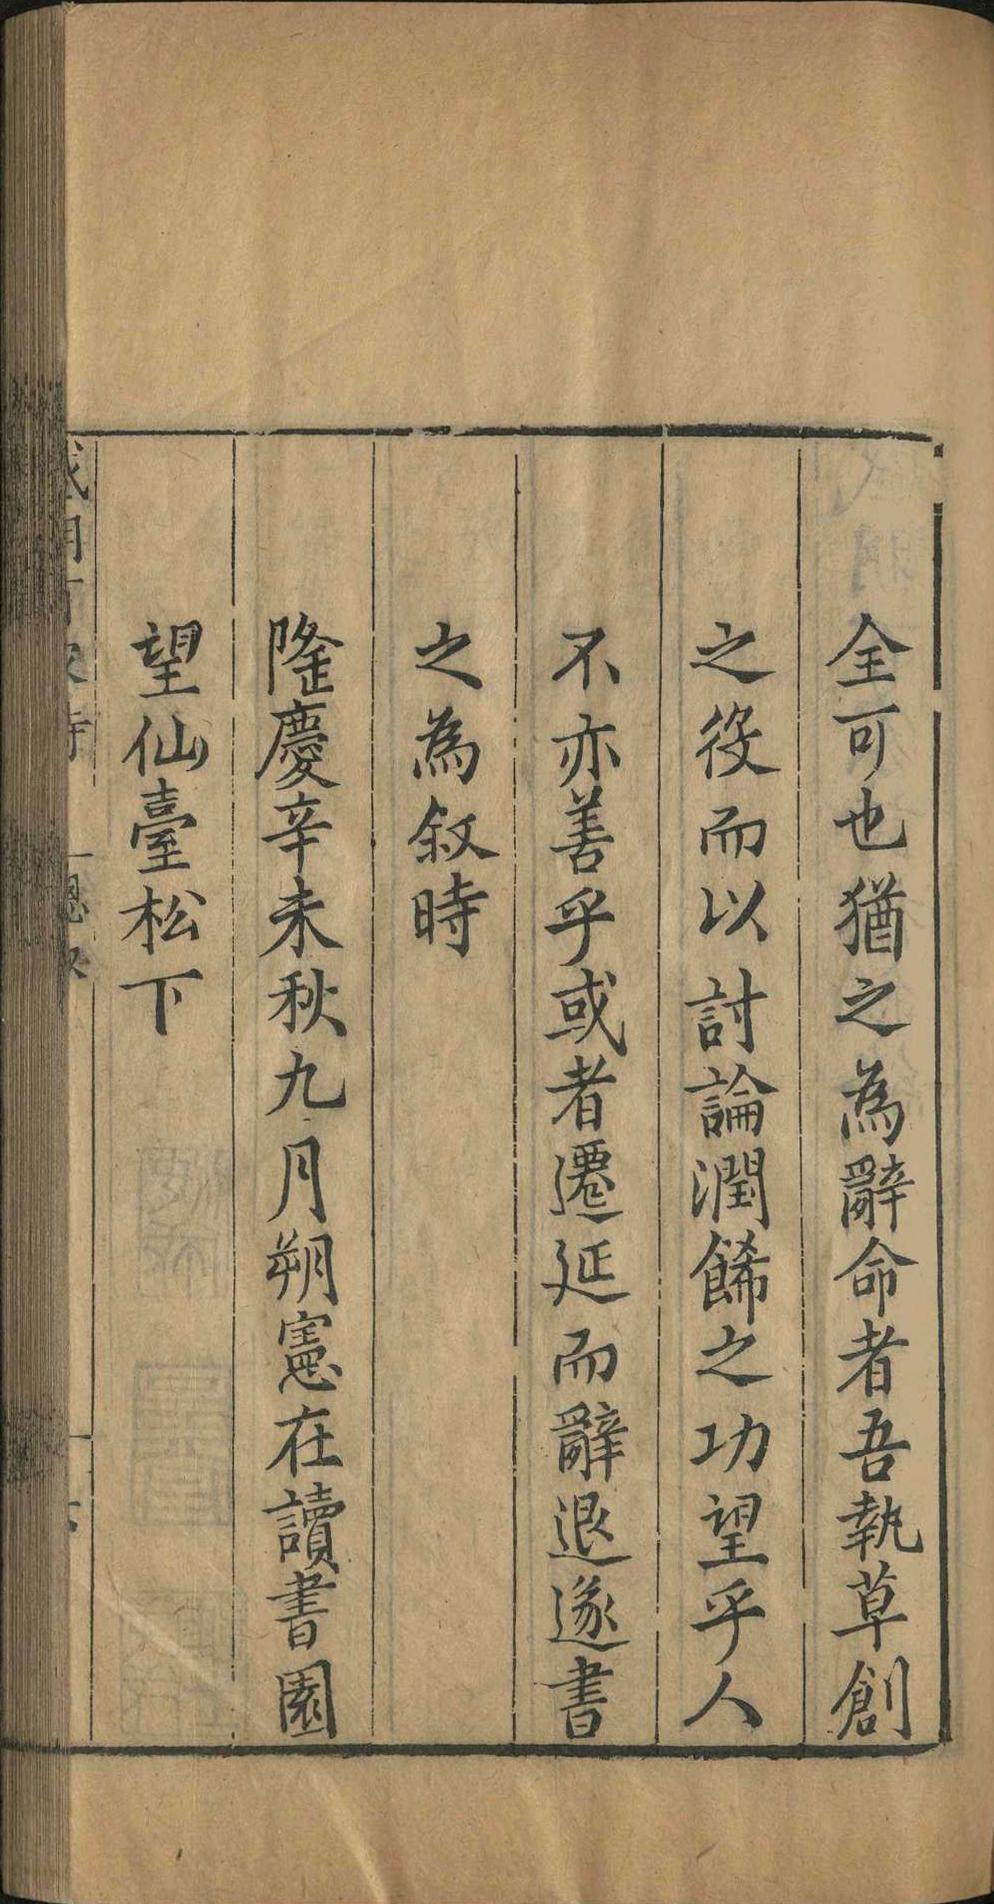 全可也猶之為辭命者吾執草創
之役而以討論潤餙之功望乎人
不亦善乎或者遷延而辭退遂書
之為敘時
隆慶辛未秋九月朔憲在讀書園
望仙臺松下